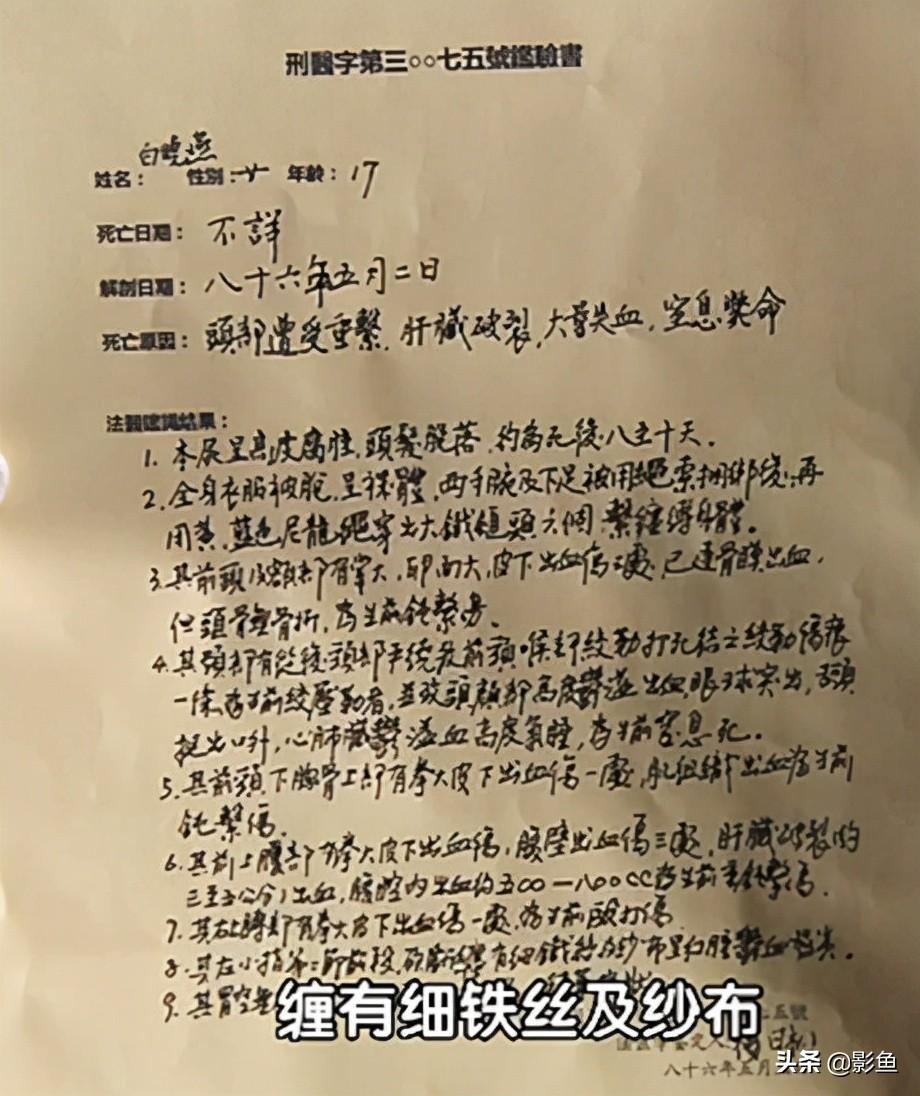 刑醫字第三○○七五號鑑驗書
白曉燕
姓名： 性別：女 年齡：17
死亡日期：不詳
解剖日期：八十六年五月二日
死亡原因：頭部遭受重擊，肝臟破裂，大量失血，窒息斃命
結果：
1. 本屍呈高度腐腫，頭髮脫落，約為死後八至十天。
2. 全身衣服被脫，呈裸體，兩手腕及下足被用繩索捆綁繞，再
用黃、藍色尼龍繩穿出大鐵鎚頭六個，繫纏縛身體。
3. 其前頭及額部有掌大，卵面大，皮下出血傷 處，已達骨膜出血，
但頭骨無骨折，為生前鈍擊傷。
4. 其頸部有從後頭部平繞至前頸喉部絞勒打死結之絞勒傷痕
一條為生前絞壓勒者，並致頭顏部高度鬱溢出血眼球突出，舌頭
挺出口外，心肺臟鬱溢血高度氣腫，為生前窒息死。
5. 其前頸下胸骨上部有拳大皮下出血傷一處，肌組織出血為生前
鈍擊傷。
6. 其前上腹部有拳大皮下出血傷，腹壁出血傷三處，肝臟破裂約
三至五公分）出血，腹腔內出血約五００－八００CC為生前重鈍擊傷。
7. 其右上膊部有拳大皮下出血傷一處，為生前毆打傷
8. 其左小指第二節 有細鐵絲及紗布
9. 其胃空
缠有细铁丝及纱布
五號
八十六年五月
头条 @影鱼